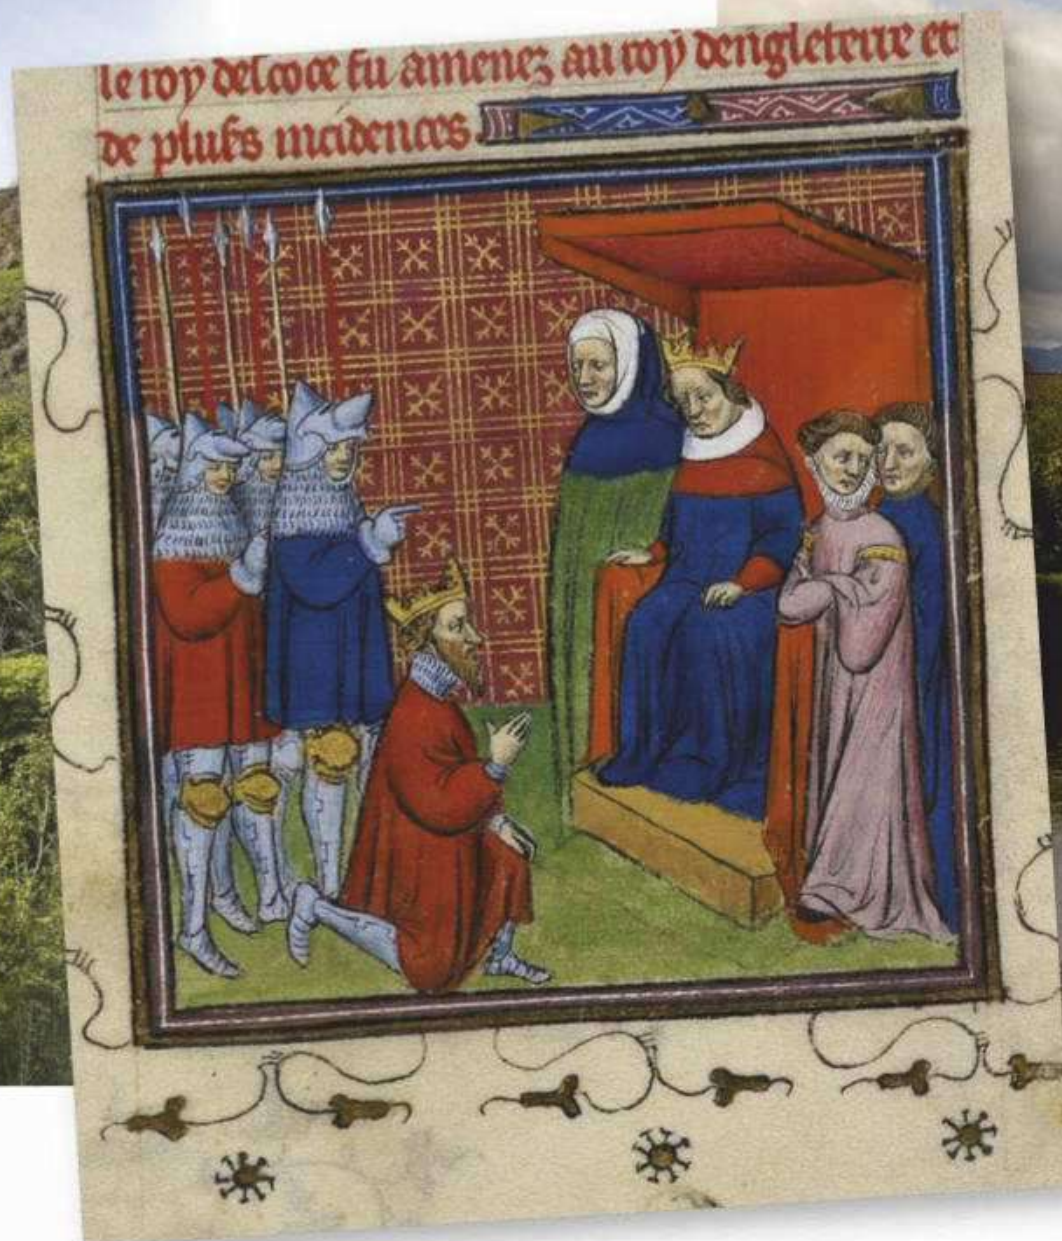 le roy descoce fu amenez au roy dengleterre et
de plusrs incidences